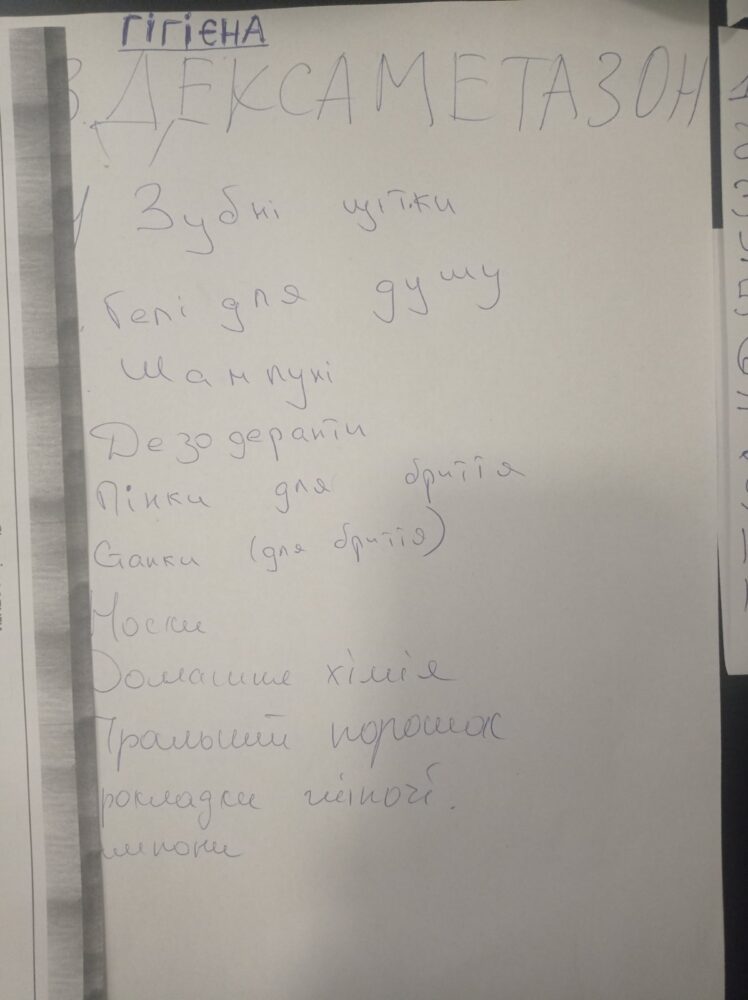 ГІГІЄНА
ДЕКСАМЕТАЗОН
Зубні щітки
Гелі для душу
Шампуні
Дезодеранти
Пінки для бриття
Станки (для бриття)
Носки
Домашня хімія
Пральний порошок
рокладки жіночі.
мпони